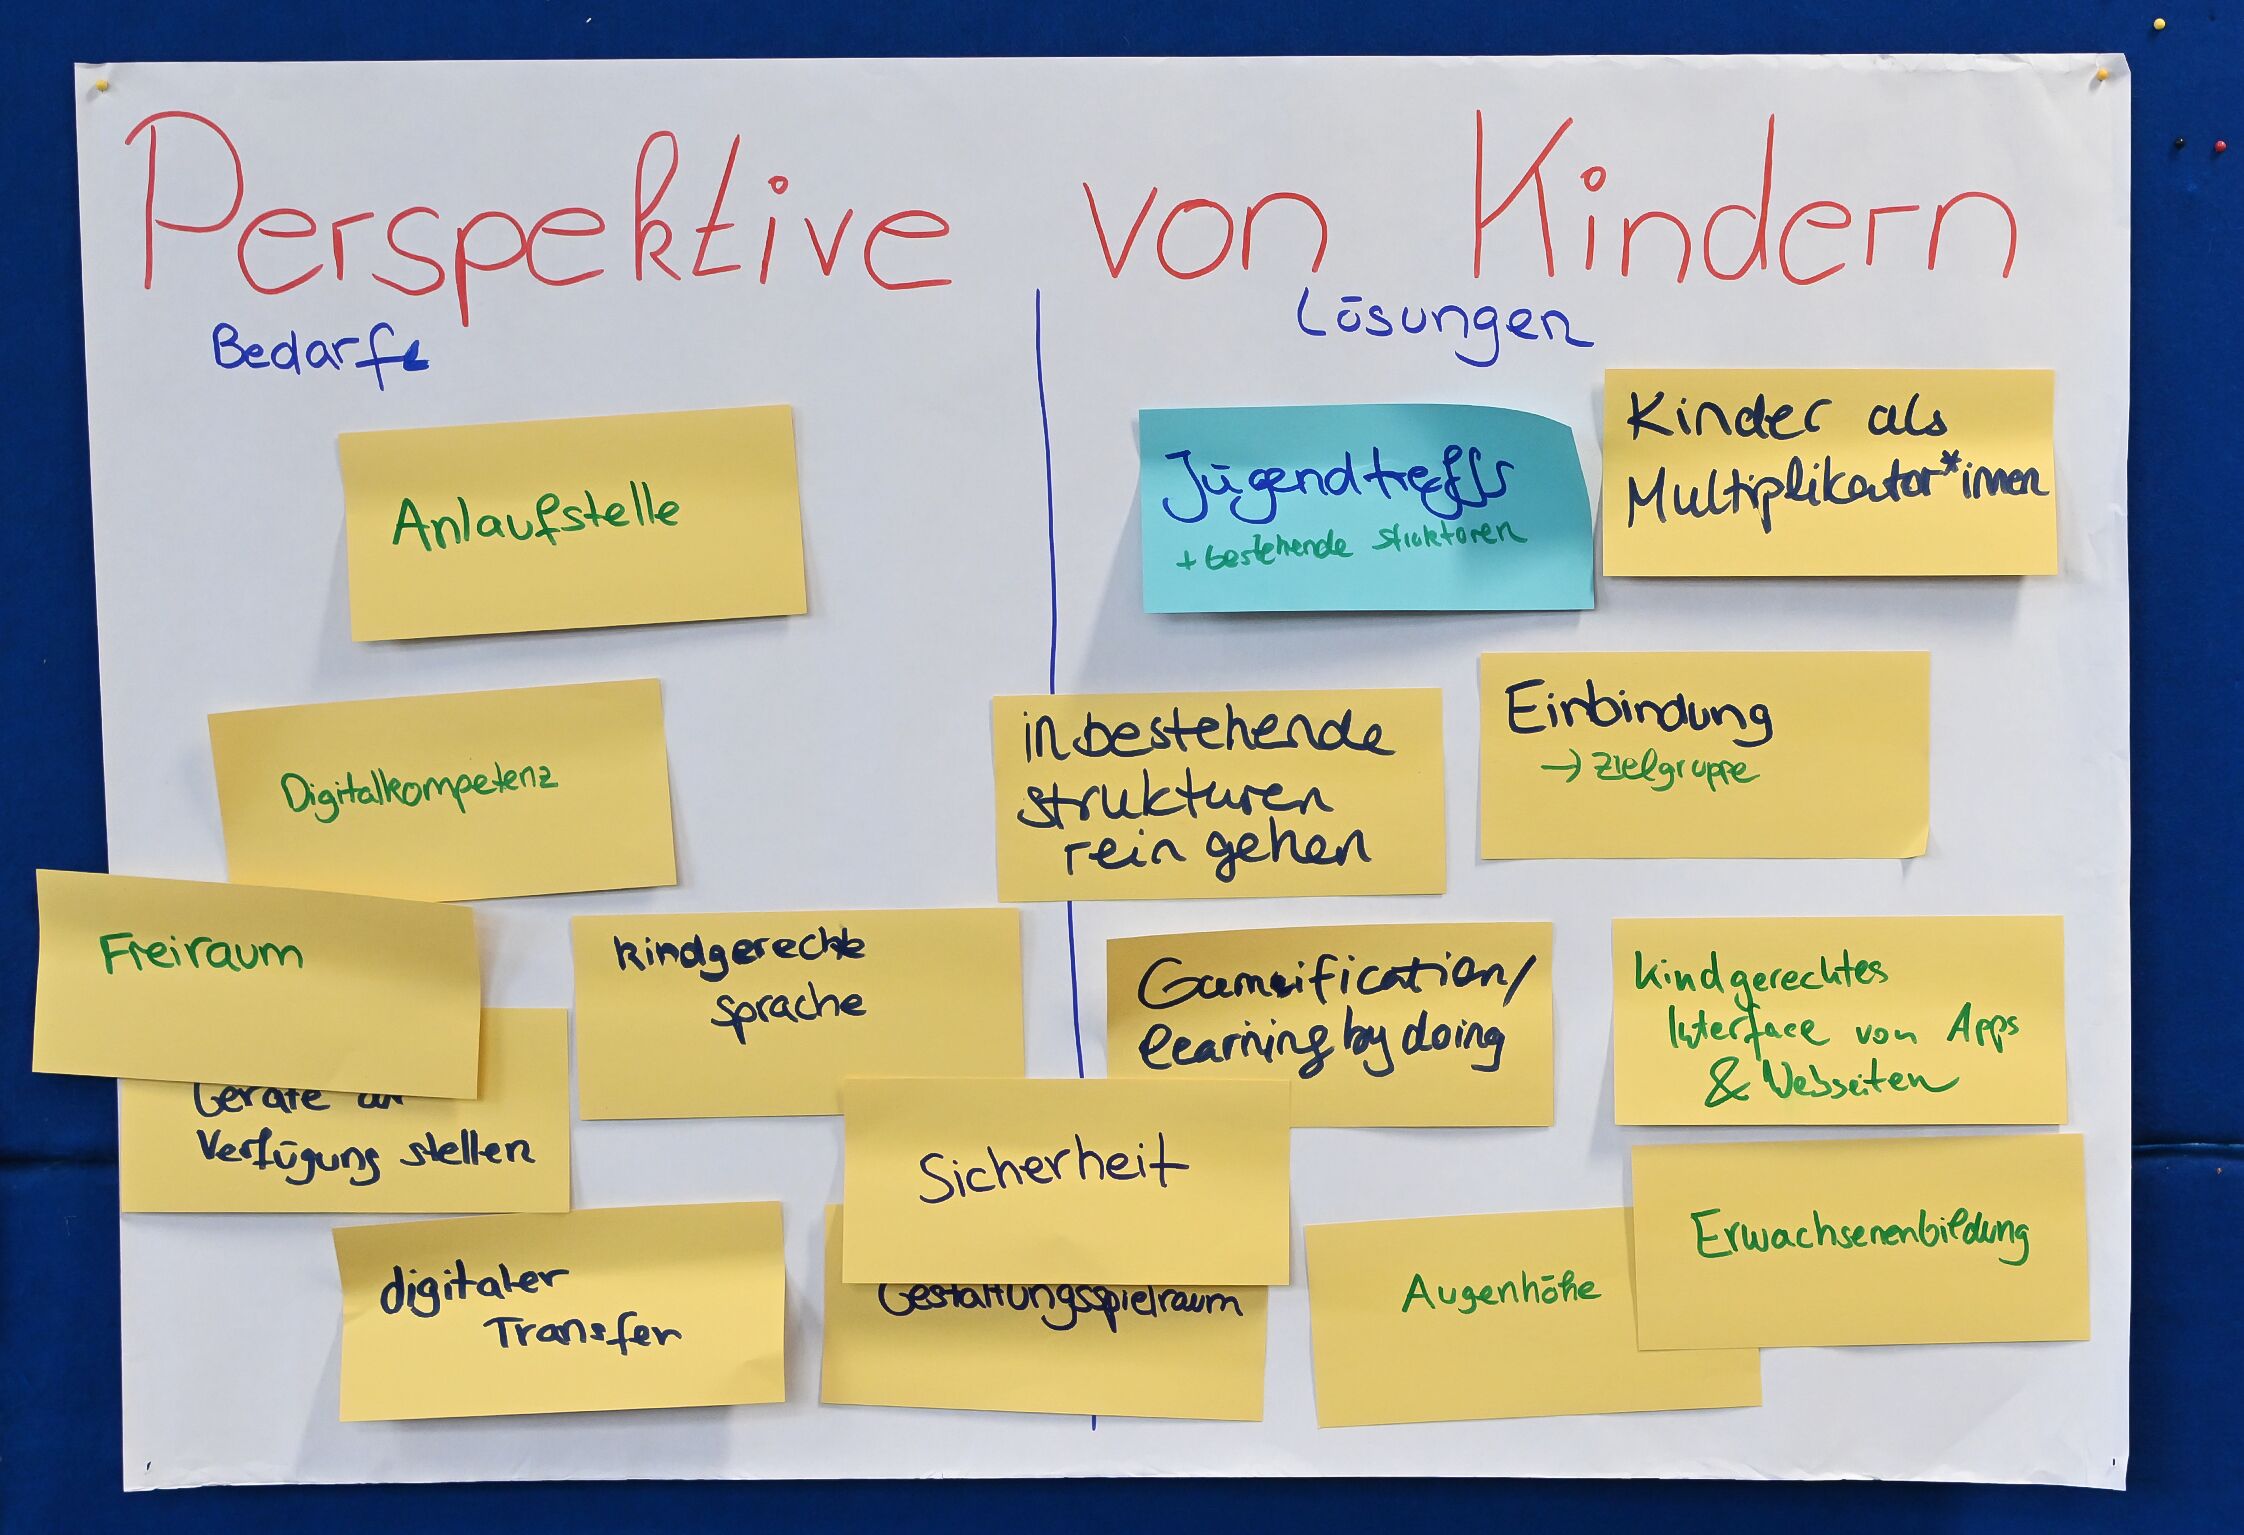 Perspektive von Kindern
Bedarfe
Anlaufstelle
Digitalkompetenz
Freiraum
Geräte zur
Verfügung stellen
kindgerechte
sprache
digitaler
Transfer
Sicherheit
Gestaltungsspielraum
Lösungen
Jugendtreffs
+ bestehende Strukturen
Kinder als
Multiplikator*innen
in bestehende
strukturen
rein gehen
Einbindung
→ Zielgruppe
Gamification/
learning by doing
kindgerechtes
Interface von Apps
& Webseiten
Augenhöhe
Erwachsenenbildung